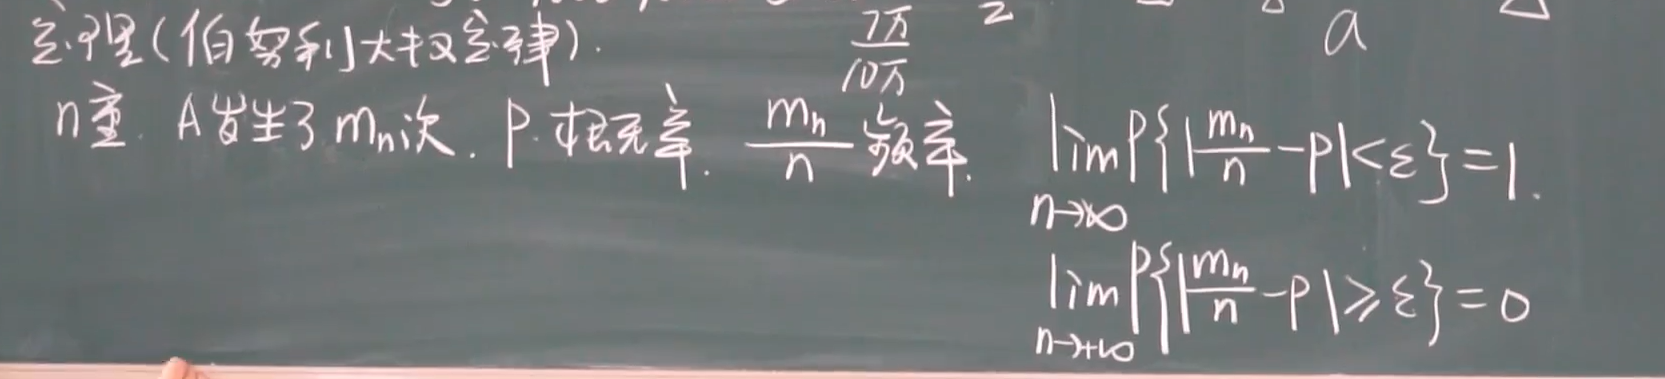 定理(伯努利大数定律).
7万/10万
2
a
n重. A发生了 mₙ次. P.概率. mₙ/n 频率.
lim n→∞ P{|mₙ/n - P| < ε} = 1.
lim n→+∞ P{|mₙ/n - P| ≥ ε} = 0